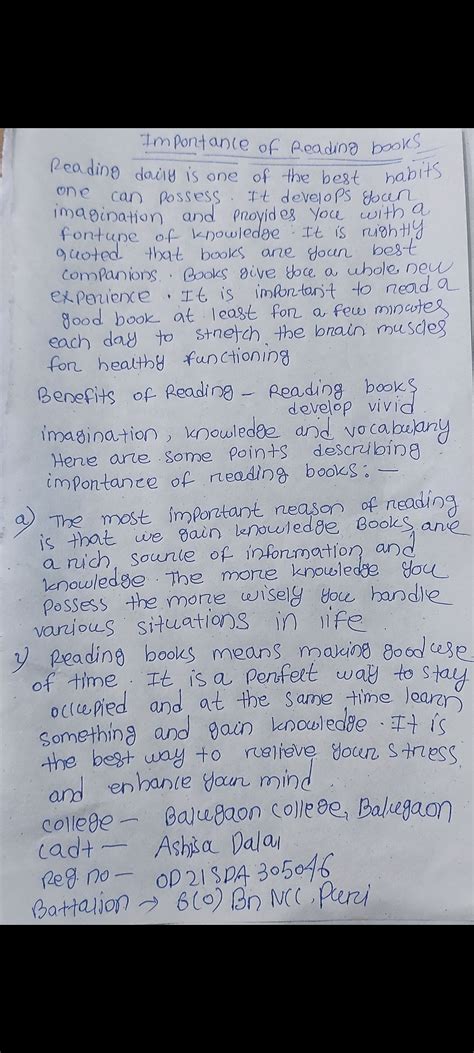 Importance of Reading books
Reading daily is one of the best habits
one can possess. It develops your
imagination and provides you with a
fortune of knowledge. It is rightly
quoted that books are your best
companions. Books give you a whole new
experience. It is important to read a
good book at least for a few minutes
each day to stretch the brain muscles
for healthy functioning
Benefits of Reading - Reading books
develop vivid
imagination, knowledge and vocabulary
Here are some points describing
importance of reading books: -
a) The most important reason of reading
is that we gain knowledge. Books are
a rich source of information and
knowledge. The more knowledge you
possess the more wisely you handle
various situations in life
2) Reading books means making good use
of time. It is a perfect way to stay
occupied and at the same time learn
something and gain knowledge. It is
the best way to relieve your stress
and enhance your mind
college - Balugaon college, Balugaon
cadt - Ashisa Dalai
Reg.no - OD21SDA305046
Battalion → 6(O) Bn NCC, Puri